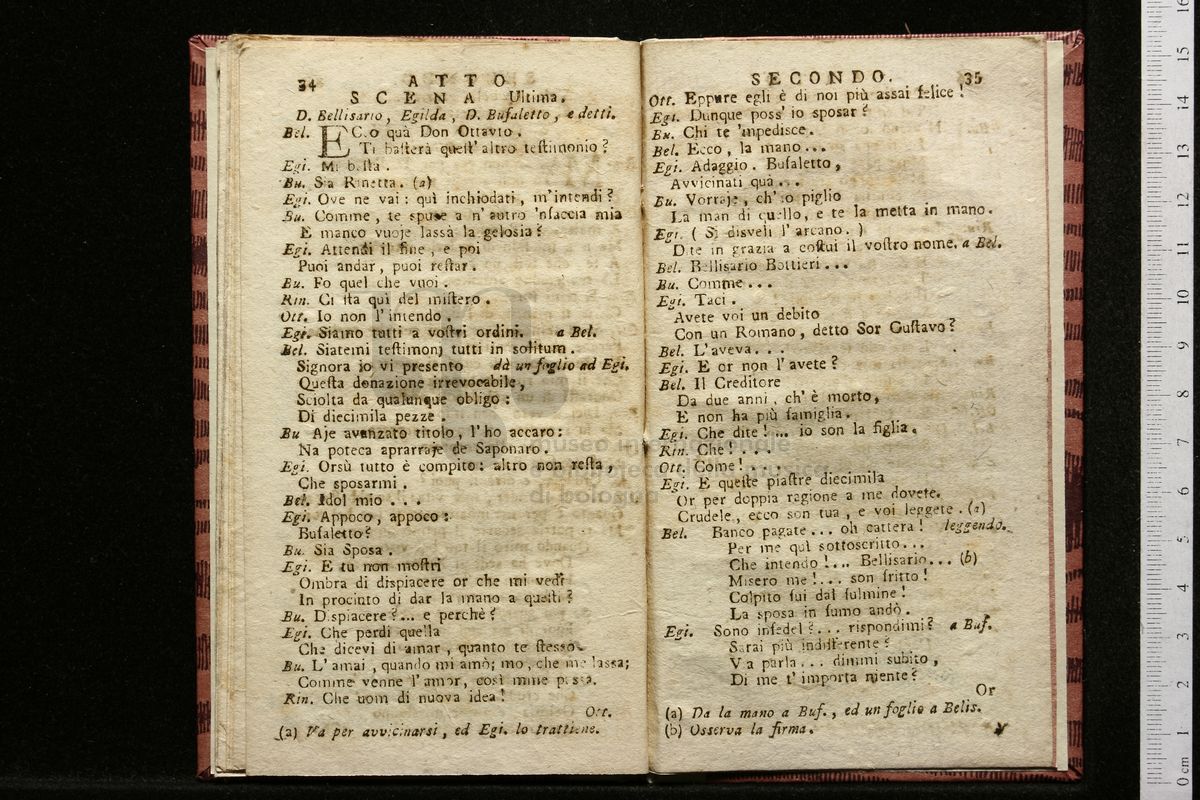 34 ATTO
SCENA Ultima.
D. Bellisario, Egilda, D. Bufaletto, e detti.
Bel. ECco quà Don Ottavio.
Ti basterà quest' altro testimonio?
Egi. Mi basta.
Bu. Sia Rinetta. (a)
Egi. Ove ne vai: quì inchiodati, m' intendi?
Bu. Comme, te spuse a n' autro 'nfaccia mia
E manco vuoje lassà la gelosia?
Egi. Attendi il fine, e poi
Puoi andar, puoi restar.
Bu. Fo quel che vuoi.
Rin. Ci sta quì del mistero.
Ott. Io non l' intendo.
Egi. Siamo tutti a vostri ordini. a Bel.
Bel. Siatemi testimonj tutti in solitum.
Signora io vi presento dà un foglio ad Egi.
Questa donazione irrevocabile,
Sciolta da qualunque obligo:
Di diecimila pezze.
Bu Aje avanzato titolo, l' ho accaro:
Na poteca aprarraje de Saponaro.
Egi. Orsù tutto è compito: altro non resta,
Che sposarmi.
Bel. Idol mio . . .
Egi. Appoco, appoco:
Bufaletto?
Bu. Sia Sposa.
Egi. E tu non mostri
Ombra di dispiacere or che mi vedi
In procinto di dar la mano a questi?
Bu. Dispiacere?... e perchè?
Egi. Che perdi quella
Che dicevi di amar, quanto te stesso.
Bu. L' amai, quando mi amò; mo, che me lassa;
Comme venne l' amor, così mme passa.
Rin. Che uom di nuova idea!
Ott.
(a) Va per avvicinarsi, ed Egi. lo trattiene.
SECONDO. 35
Ott. Eppure egli è di noi più assai felice!
Egi. Dunque poss' io sposar?
Bu. Chi te 'mpedisce.
Bel. Ecco, la mano...
Egi. Adagio. Bufaletto,
Avvicinati quà...
Bu. Vorraje, ch' io piglio
La man di quello, e te la metta in mano.
Egi. ( Si disveli l' arcano. )
Dite in grazia a costui il vostro nome. a Bel.
Bel. Bellisario Bottieri...
Bu. Comme...
Egi. Taci.
Avete voi un debito
Con un Romano, detto Sor Gustavo?
Bel. L' aveva...
Egi. E or non l' avete?
Bel. Il Creditore
Da due anni, ch' è morto,
E non ha più famiglia.
Egi. Che dite!... io son la figlia.
Rin. Che! . . .
Ott. Come! . . .
Egi. E queste piastre diecimila
Or per doppia ragione a me dovete.
Crudele, ecco son tua, e voi leggete. (a)
Bel. Banco pagate... oh cattera! leggendo.
Per me quì sottoscritto...
Che intendo!... Bellisario... (b)
Misero me!... son fritto!
Colpito fui dal fulmine!
La sposa in fumo andò.
Egi. Sono infedel?... rispondimi? a Buf.
Sarai più indifferente?
Va parla... dimmi subito,
Di me t' importa niente?
Or
(a) Da la mano a Buf., ed un foglio a Belis.
(b) Osserva la firma.
museo internazionale
e biblioteca della musica
di bologna
0 cm 1 2 3 4 5 6 7 8 9 10 11 12 13 14 15 16